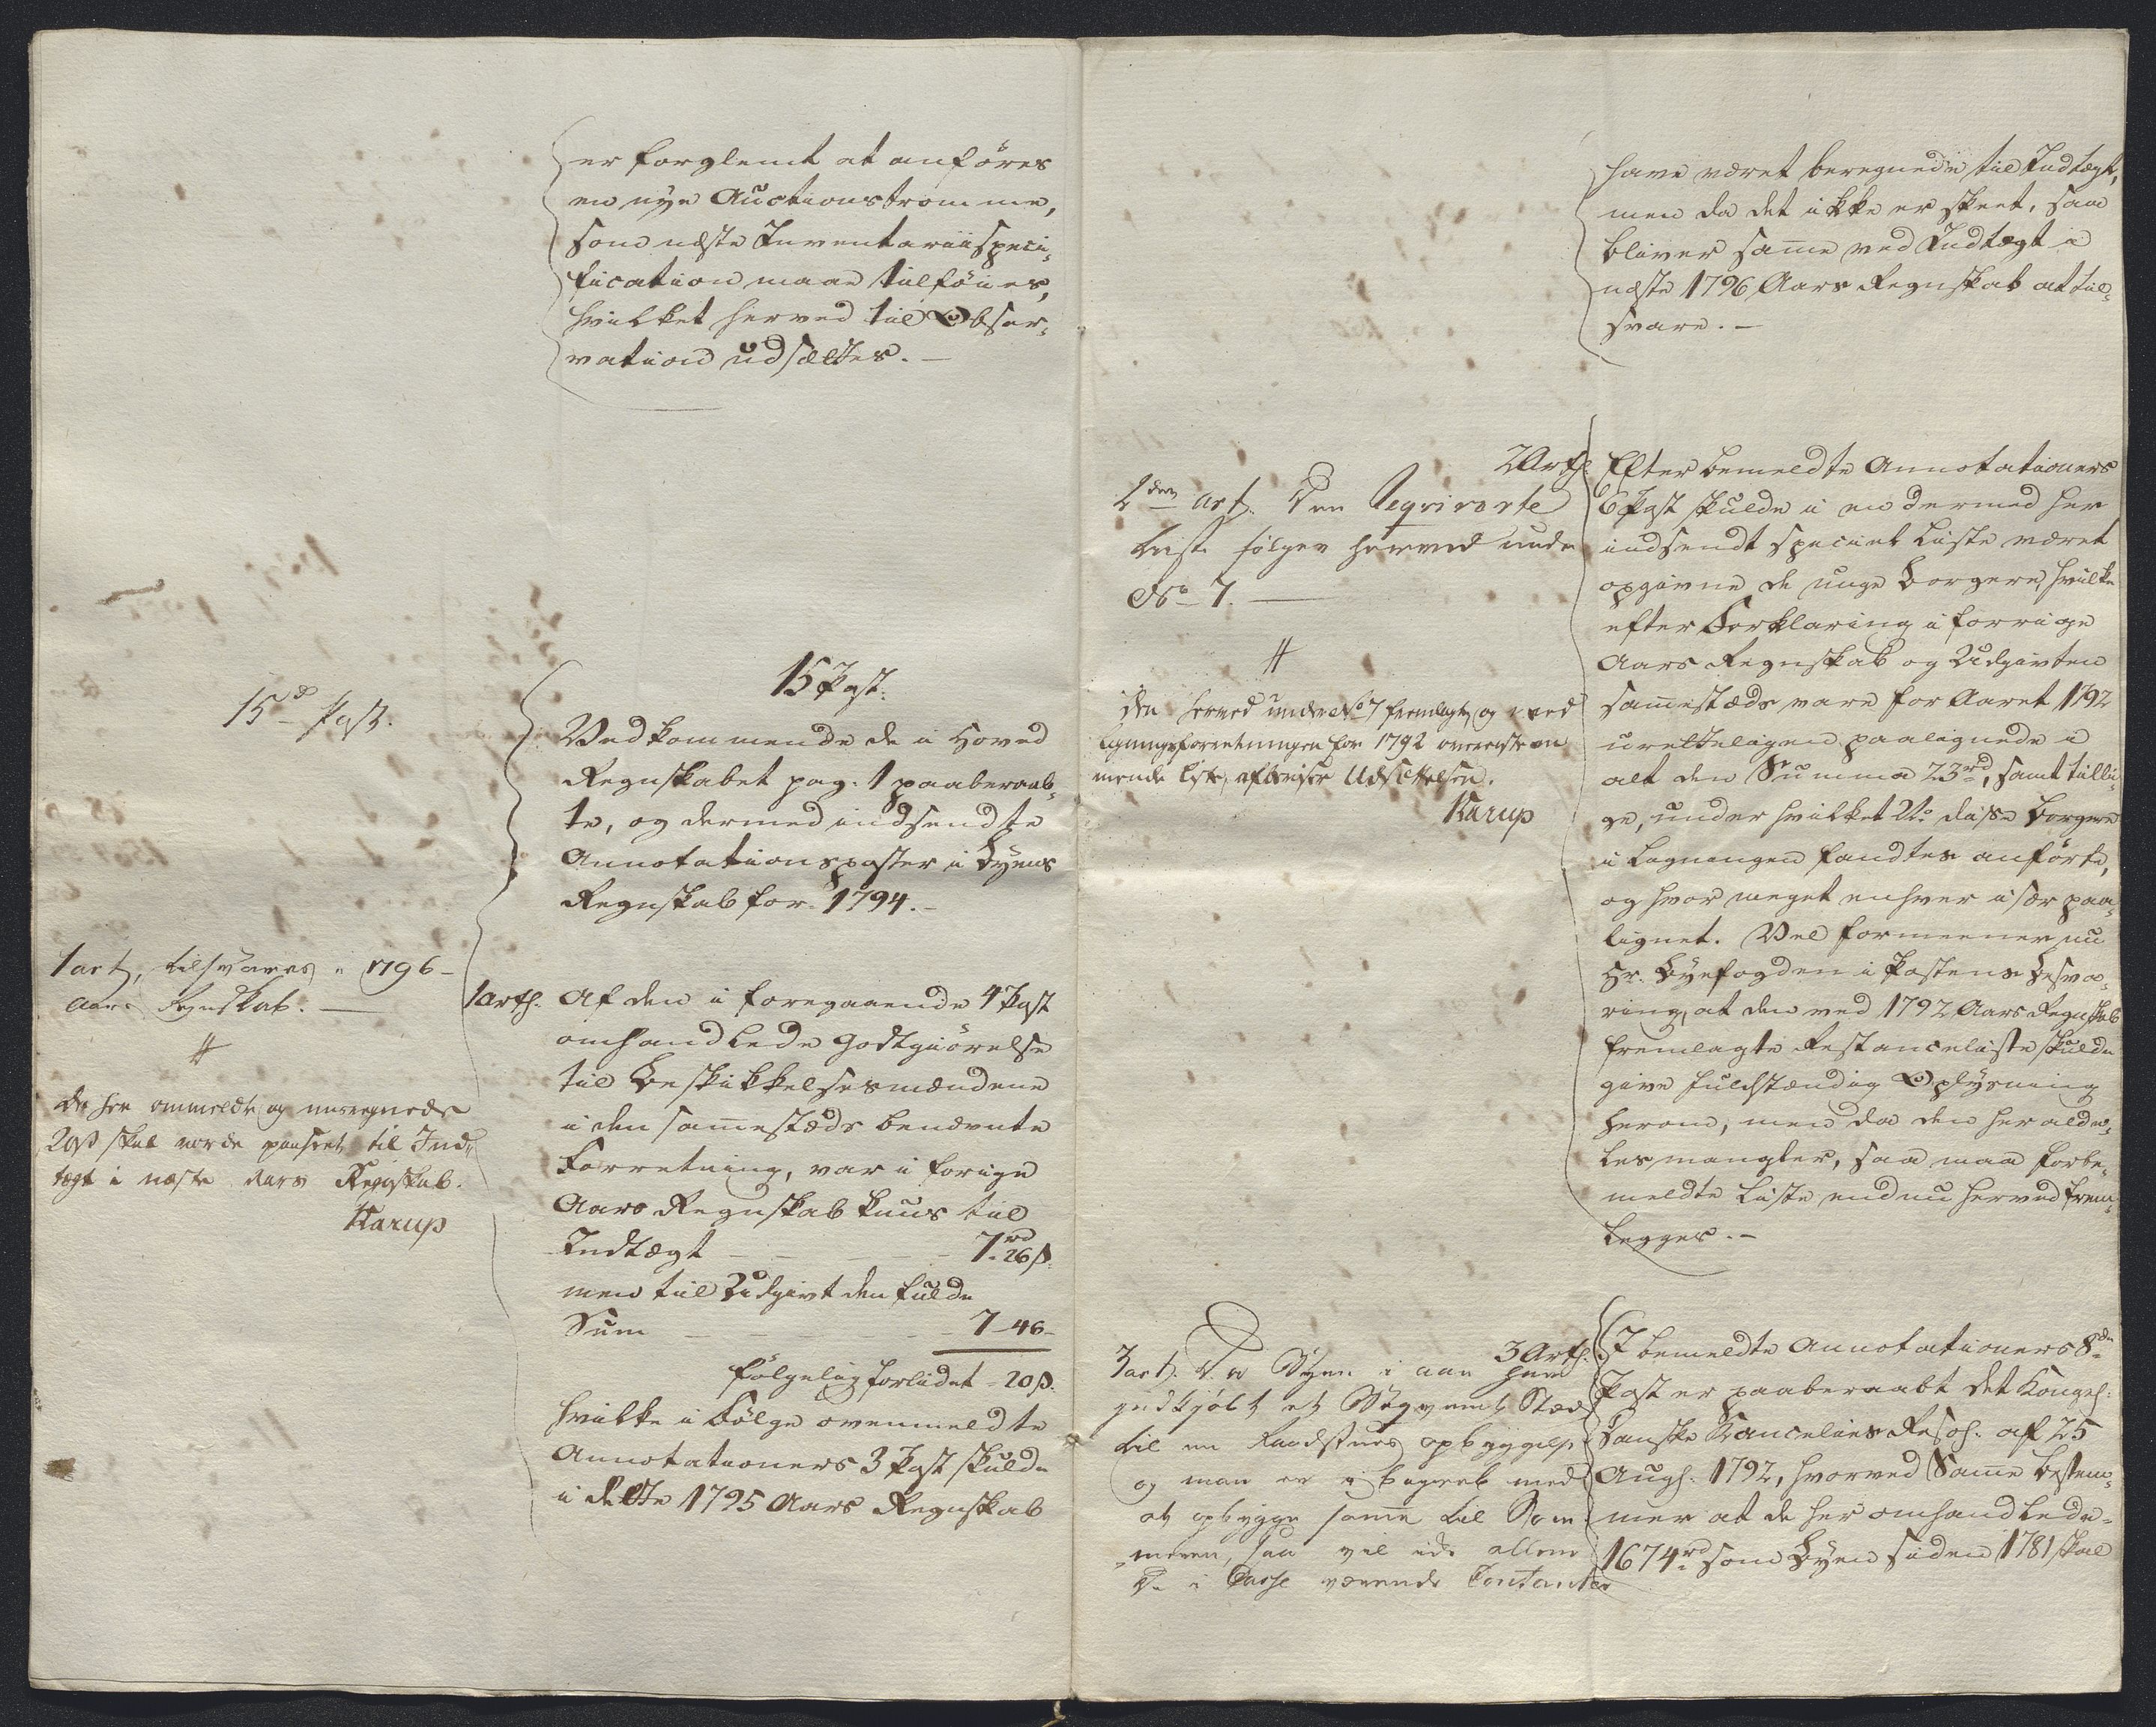 er forglemt at anföres
en nye Auctionstromme,
som næste Inventariispeci-
fication maae tilföies,
hvilket herved til Obser-
vation udsættes. –
15 Post.
15d Post.
Vedkommende de i Hoved
Regnskabet pag. 1 paaberaab-
te, og dermed indsendte
Annotationsposter i Byens
Regnskab for 1794. –
1 art, tilsvares i 1796-
Aars Regnskab. —
#
De her ommeldte og
20 ß skal vorde passeret til Ind-
tægt i næste Aars Regnskab.
Karup
1 Artl. Af den i foregaaende 4 Post
omhandlede Godtgiörelse
til Beskikkelsesmændene
i den sam̄estæds benævnte
Forretning, var i forige
Aars Regnskab kuns til
Indtægt — — — 7rd 26 ß.
men til Udgivt den fulde
Sum — — — 7 - 46 -
fölgelig forlidet - 20 ß.
hvilke i Fölge ovenmeldte
Annotationers 3 Post skulde
i dette 1795 Aars Regnskab
have været beregnede til Indtægt,
men da det ikke er skeet, saa
bliver sam̄e ved Indtægt i
næste 1796 Aars Regnskab at til-
svare. –
2 Artl.
2den art. Den Reqvirerte
Liste følger herved under
No 7. —
#
Den herved under No 7 fremlagte og med
Ligningsforretningen for 1792 overeenstem-
mende Liste, afbeviser Udsættelsen.
Karup
Efter bemeldte Annotationers
6 Post skulde i en dermed her
indsendt speciel Liste været
opgivne de unge Borgere, hvilke
efter Forklaring i forrige
Aars Regnskab og Udgivten
sam̄estæds vare for Aaret 1792
urettelignen paalignede i
alt den Summa 23rd, samt tilli-
ge, under hvilket No disse Borgere
i Ligningen fandtes anförte,
og hvor meget enhver især paa-
lignet. Vel formeener nu
Hr. Byefogden i Postens Besva-
ring, at den ved 1792 Aars Regnskab
fremlagte Restanceliste skulde
give fuldstændig Oplysning
herom, men da den her alde-
les mangler, saa maa forbe-
meldte Liste endnu herved frem-
legges. –
3 Artl.
3 art. Da Byen i aar har
indkjöbt et Beqvemt Stæd
til en Raadstues opbyggelse
og man er i begreb med
at opbygge samme til Som-
meren, saa vil ikke allene
De i Casse værende Contanter
I bemeldte Annotationers 8de
Post er paaberaabt det Kongel.
Danske Cancelies Resol. af 25
Augl. 1792, hvorved Sam̄e bestem-
mer at de her omhandlede
1674rd som Byen siden 1781 skal